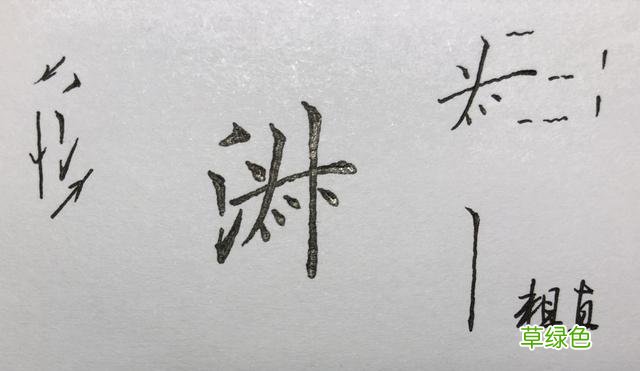 淋
粗直
草绿色